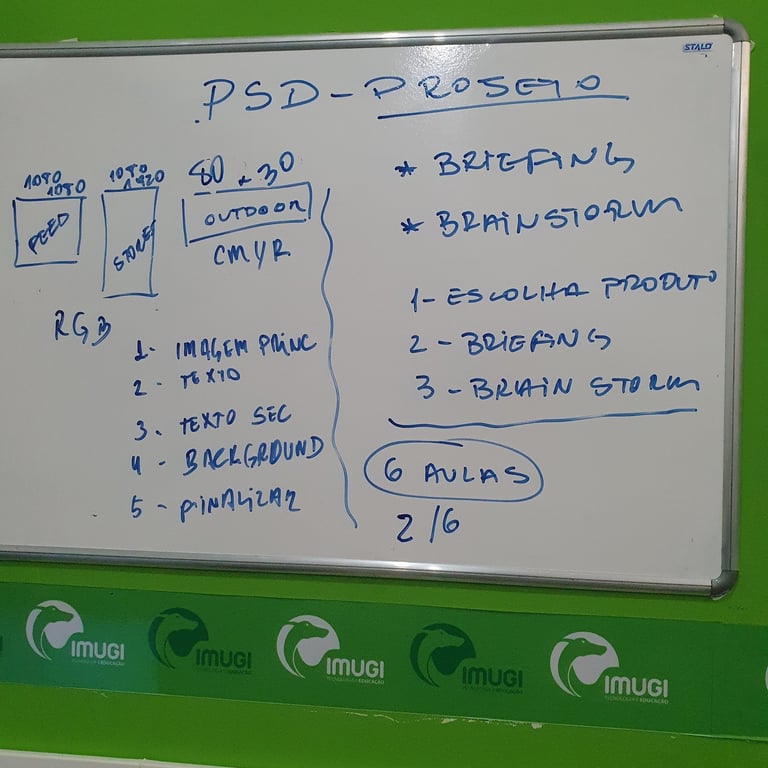 STALO
PSD - PROJETO
1080
1080
FEED
1080
1920
STORIES
80 x 30
OUTDOOR
CMYK
RGB
1- IMAGEM PRINC
2- TEXTO
3- TEXTO SEC
4- BACKGROUND
5- FINALIZAR
* BRIEFING
* BRAINSTORM
1- ESCOLHA PRODUTO
2- BRIEFING
3- BRAIN STORM
6 AULAS
2/6
IMUGI
TECNOLOGIA E EDUCAÇÃO
IMUGI
IMUGI
TECNOLOGIA E EDUCAÇÃO
IMUGI
IMUGI
TECNOLOGIA E EDUCAÇÃO